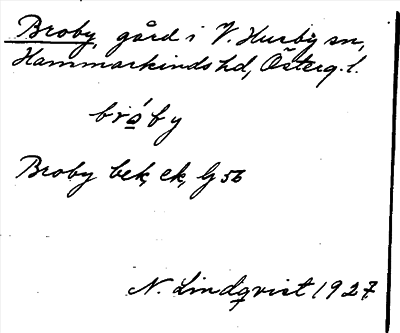 Broby, gård i V. Husby sn,
Hammarkinds hd, Österg. l.
bró̲by
Broby bek, ek, G 56
N. Lindqvist 1927